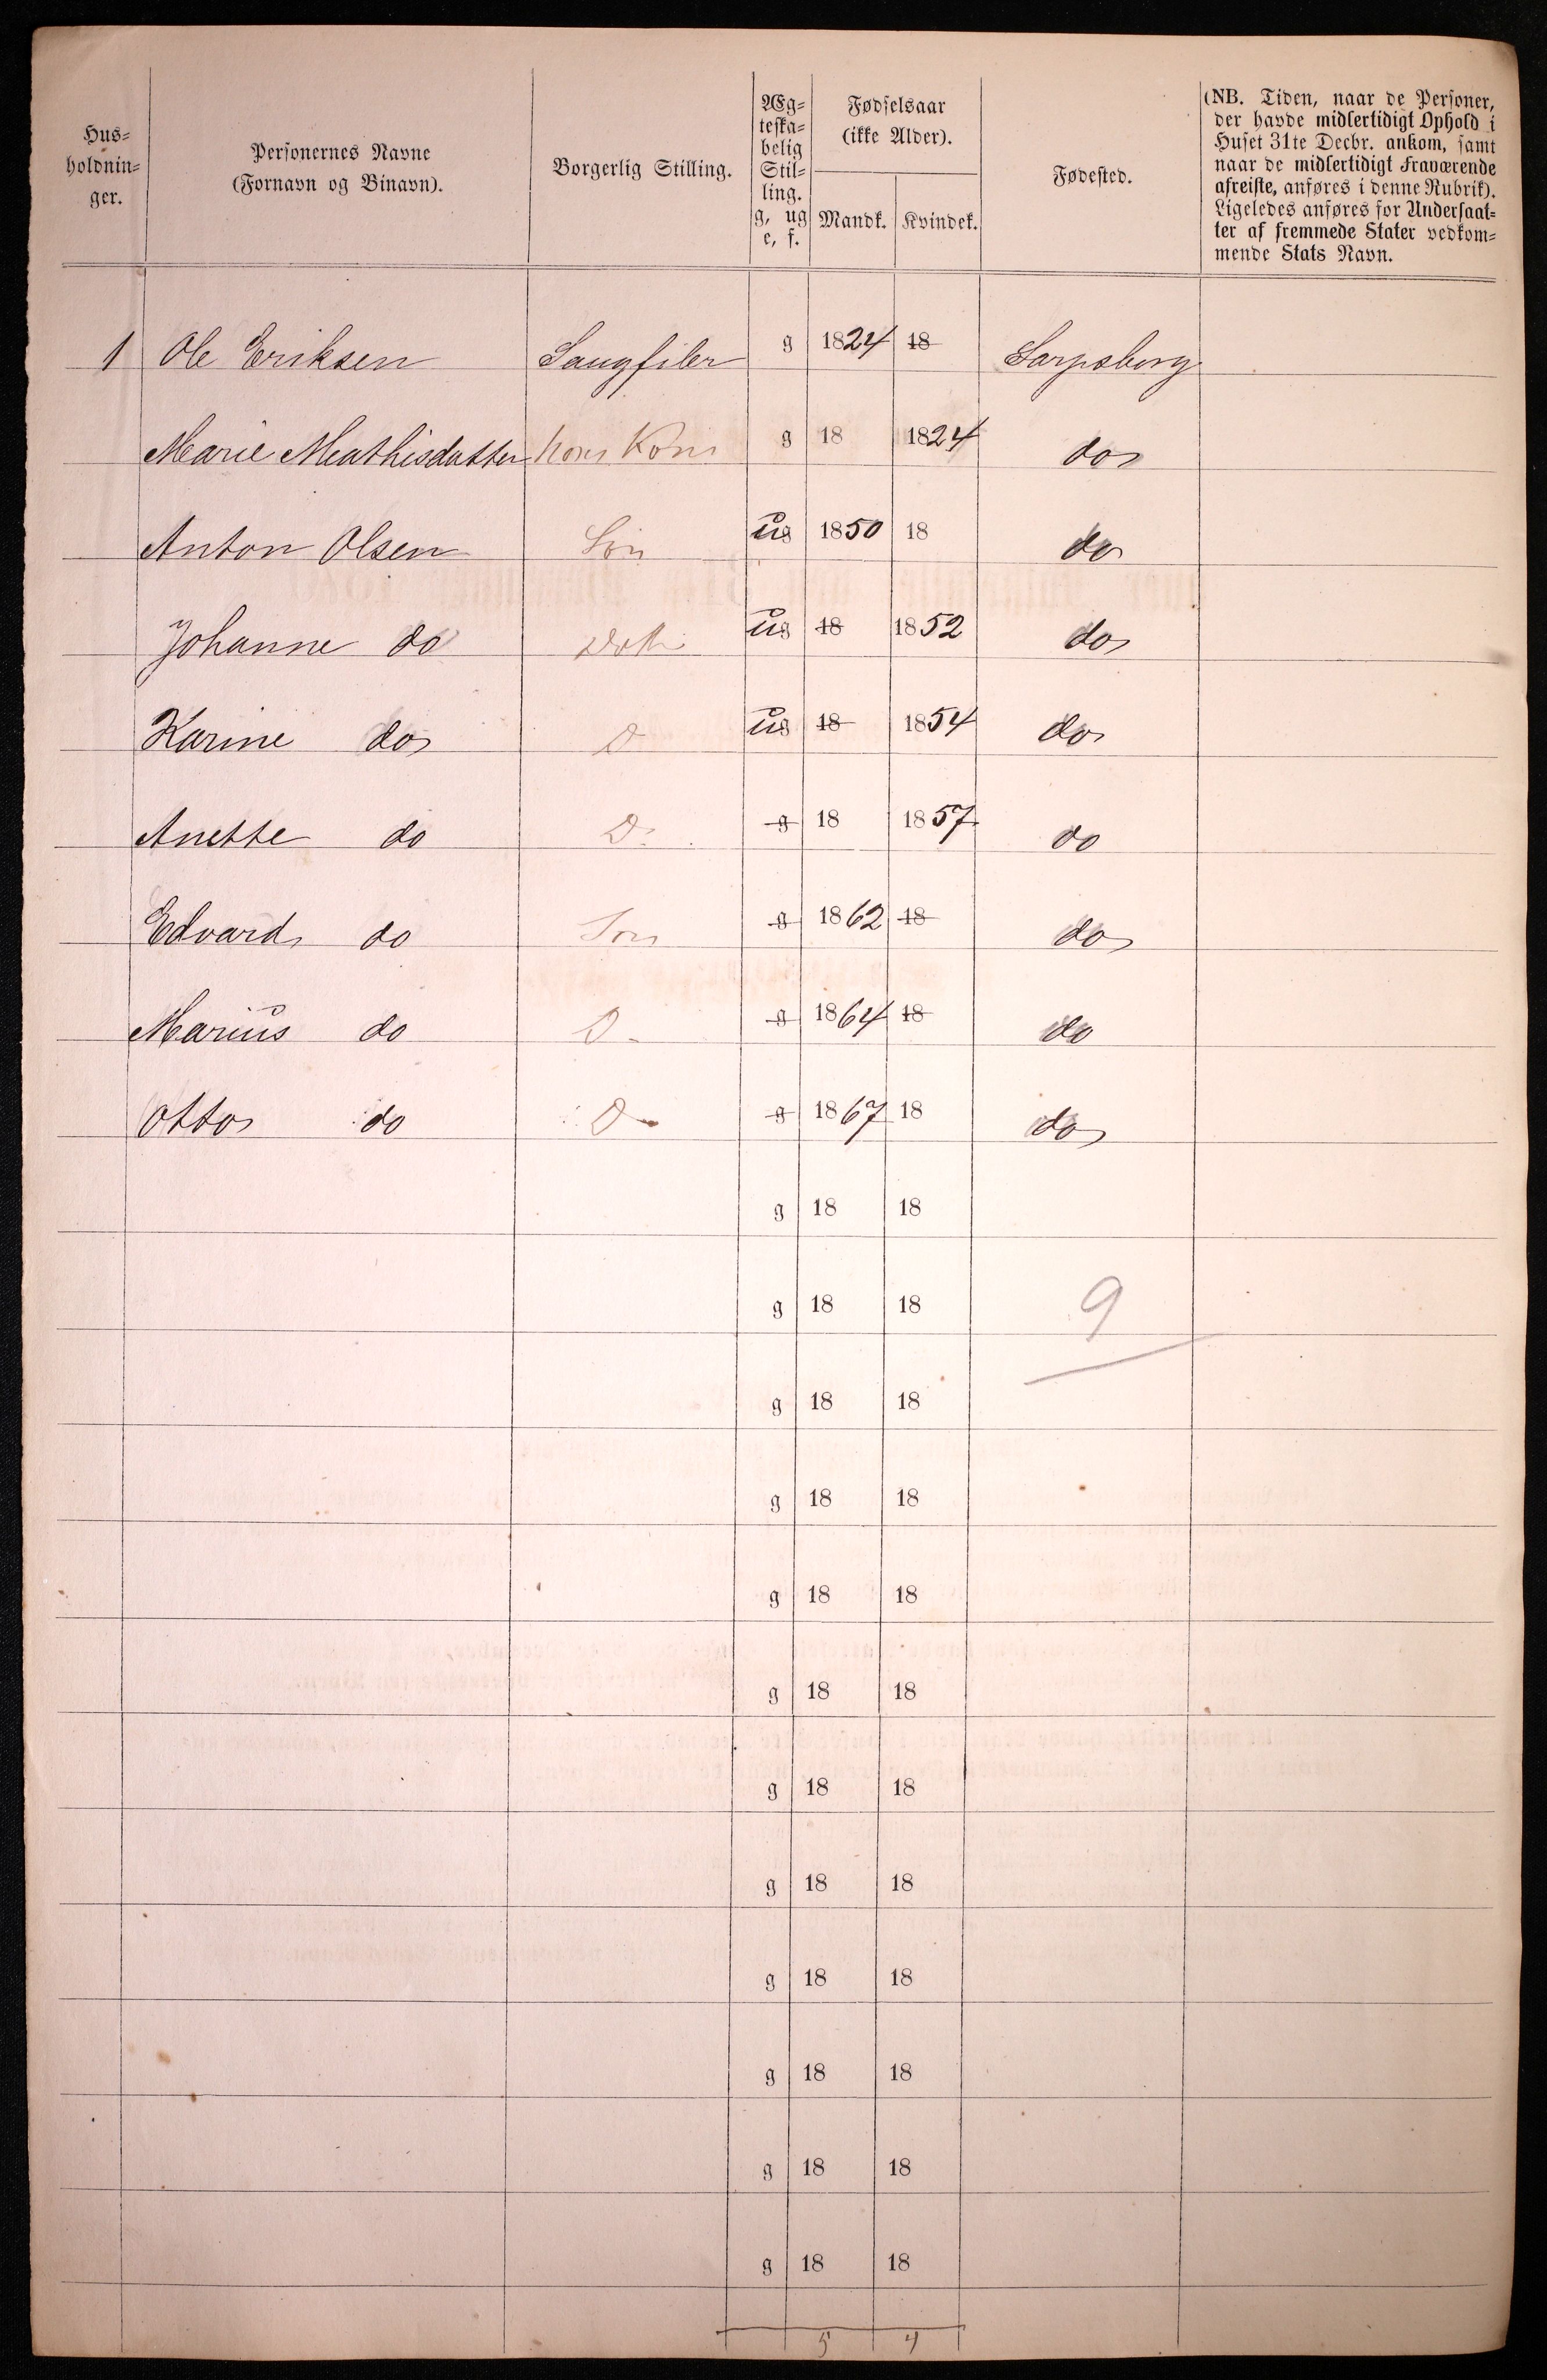 Hus=
holdnin=
ger.
Personernes Navne
(Fornavn og Binavn).
Borgerlig Stilling.
Æg=
teska=
belig
Stil=
ling.
g, ug
e, f.
Fødselsaar
(ikke Alder).
Mandk. Kvindek.
Fødested.
(NB. Tiden, naar de Personer,
der havde midlertidigt Ophold i
Huset 31te Decbr. ankom, samt
naar de midlertidigt Fraværende
afreiste, anføres i denne Rubrik).
Ligeledes anføres for Undersaat=
ter af fremmede Stater vedkom=
mende Stats Navn.
1 Ole Eriksen Saugfiler g 1824 18 Sarpsborg
Marie Mathisdatter hans Kone g 18 1824 do
Anton Olsen Søn ug 1850 18 do
Johanne do Datt ug 18 1852 do
Karine do D ug 18 1854 do
Anette do D g 18 1857 do
Edvard do Søn g 1862 18 do
Marius do D g 1864 18 do
Otto do D g 1867 18 do
g 18 18
g 18 18 9
g 18 18
g 18 18
g 18 18
g 18 18
g 18 18
g 18 18
g 18 18
g 18 18
g 18 18
g 18 18
5 4